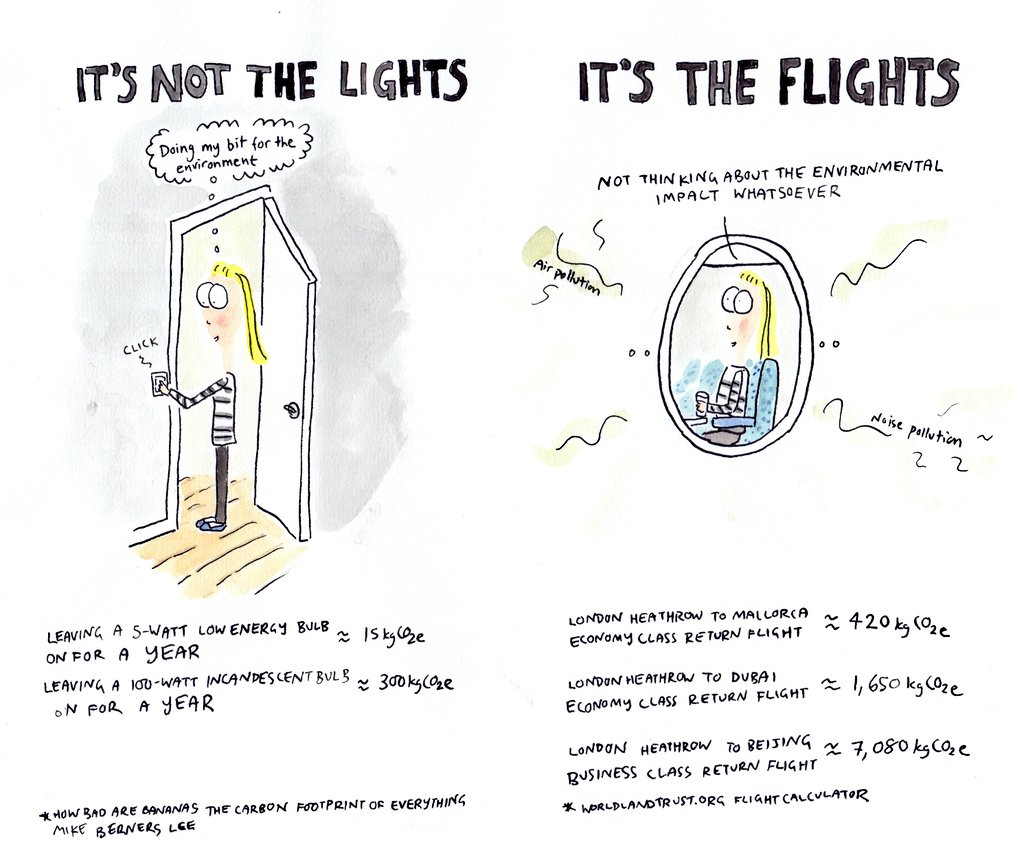 IT'S NOT THE LIGHTS
Doing my bit for the
environment
CLICK
LEAVING A 5-WATT LOW ENERGY BULB
ON FOR A YEAR
≈ 15 kgCO2e
LEAVING A 100-WATT INCANDESCENT BULB
ON FOR A YEAR
≈ 300kgCO2e
*HOW BAD ARE BANANAS THE CARBON FOOTPRINT OF EVERYTHING
MIKE BERNERS LEE
IT'S THE FLIGHTS
NOT THINKING ABOUT THE ENVIRONMENTAL
IMPACT WHATSOEVER
Air pollution
Noise pollution
LONDON HEATHROW TO MALLORCA
ECONOMY CLASS RETURN FLIGHT
≈ 420 kgCO2e
LONDON HEATHROW TO DUBAI
ECONOMY CLASS RETURN FLIGHT
≈ 1,650 kgCO2e
LONDON HEATHROW TO BEIJING
BUSINESS CLASS RETURN FLIGHT
≈ 7,080 kgCO2e
* WORLDLANDTRUST.ORG FLIGHT CALCULATOR